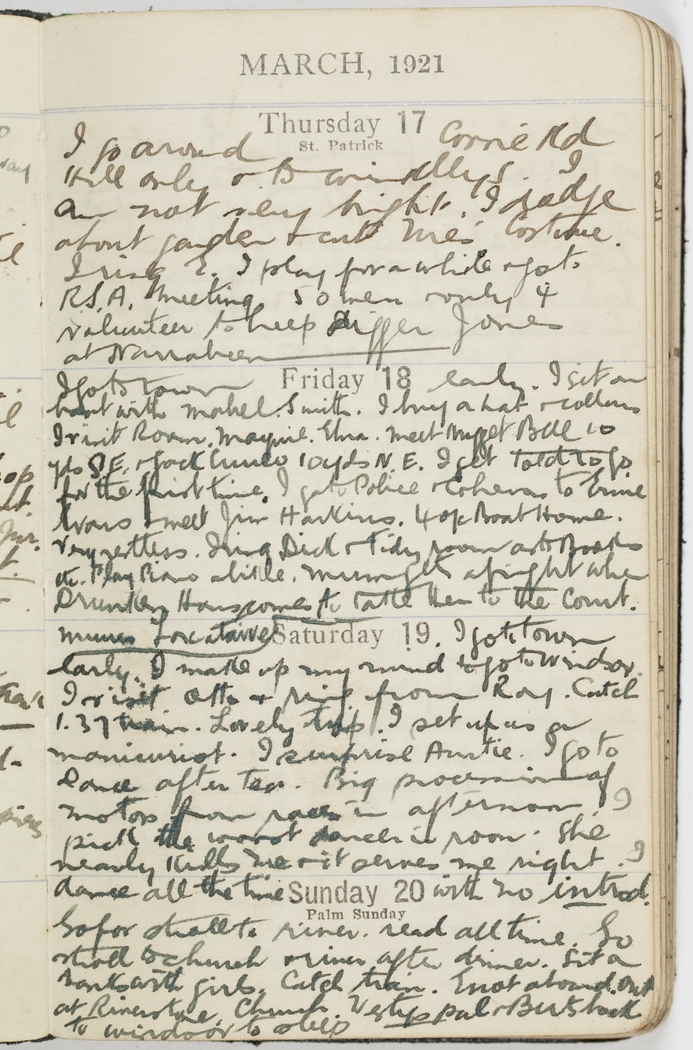 MARCH, 1921
Thursday 17
St. Patrick
I go around Corrie Rd
Hill only & to
am not very bright. I
about garden & cut Costume.
I ring E. I play for a while & go to
R.S.A. Meeting. 50 men & only 4
volunteer to keep Digger Jones
at Narrabeen
Friday 18
I go to town early. I sit on
with Mabel Smith. I buy a hat & collars
I visit Room. Elna. Meet 10
yds S.E. & Jack 10 yds N.E. I get told to go
for the first time. I go to Police & to
& meet Jim Harkins. 4 op Boat Home.
Very restless. I ring Dick & Tidy room
etc. Play Piano a little. Mum gets a fright when
Drunken Hans comes to take Hen to the Court.
Mums
Saturday 19. I go to town
early. I make up my mind to go to Windsor.
I visit & ring from Ray. Catch
1.37 train. Lovely trip. I set up as a
manicurist. I surprise Auntie. I go to
Dance after tea. Big procession of
motors from races in afternoon. I
pick the worst dancer in room. She
nearly kills me & it serves me right. I
dance all the time with no introd.
Sunday 20
Palm Sunday
Go for stroll to river. read all time. Go
stroll to church & river after dinner. Sit on
banks with girls. Catch tram. about
at Riverstone. Church. pal & Bert back
to windsor to sleep